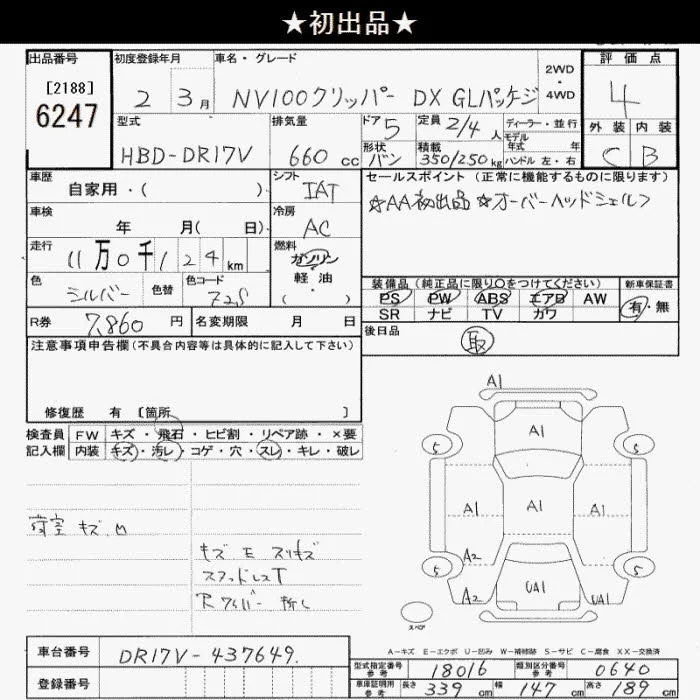 ★初出品★
出品番号 初度登録年月 車名・グレード 評価点
[2188]
6247
2 3月 NV100クリッパー DX GLパッケージ 2WD・4WD 4
型式 排気量 ドア 5 定員 2/4人 ディーラー・並行 外装 内装
モデル年式 年
HBD-DR17V 660cc 形状 バン 積載 350/250kg ハンドル 左・右 C B
車歴 シフト セールスポイント(正常に機能するものに限ります)
自家用・( ) IAT ☆AA初出品 ☆オーバーヘッドシェルフ
車検 冷房
年 月( 日) AC
走行 燃料
11万0千124km ガソリン
軽・油
( )
色 色替 色コード 装備品(純正品に限り○をつけてください) 新車保証書
シルバー Z2S PS PW ABS エアB AW 有・無
SR ナビ TV カワ
R券 7,860円 名変期限 月 日 後日品 取
注意事項申告欄(不具合内容等は具体的に記入して下さい)
修復歴 有 [箇所 ]
検査員 FW キズ・飛石・ヒビ割・リペア跡・×要
記入欄 内装 キズ・汚レ・コゲ・穴・スレ・キレ・破レ
荷室 キズ.
キズ E スリキズ
スタッドレスT
R ワイパー 折レ
A1
A1
5 5
A1 A1 A1
A2
5 5
A2 UA1 UA1
スペア
A-キズ E-エクボ U-凹み W-補修跡 S-サビ C-腐食 XX-交換済
車台番号 DR17V-437649.
型式指定番号 参考 18016 類別区分番号 参考 0640
登録番号
車庫証明用 参考 長さ 339cm 幅 147cm 高さ 189cm